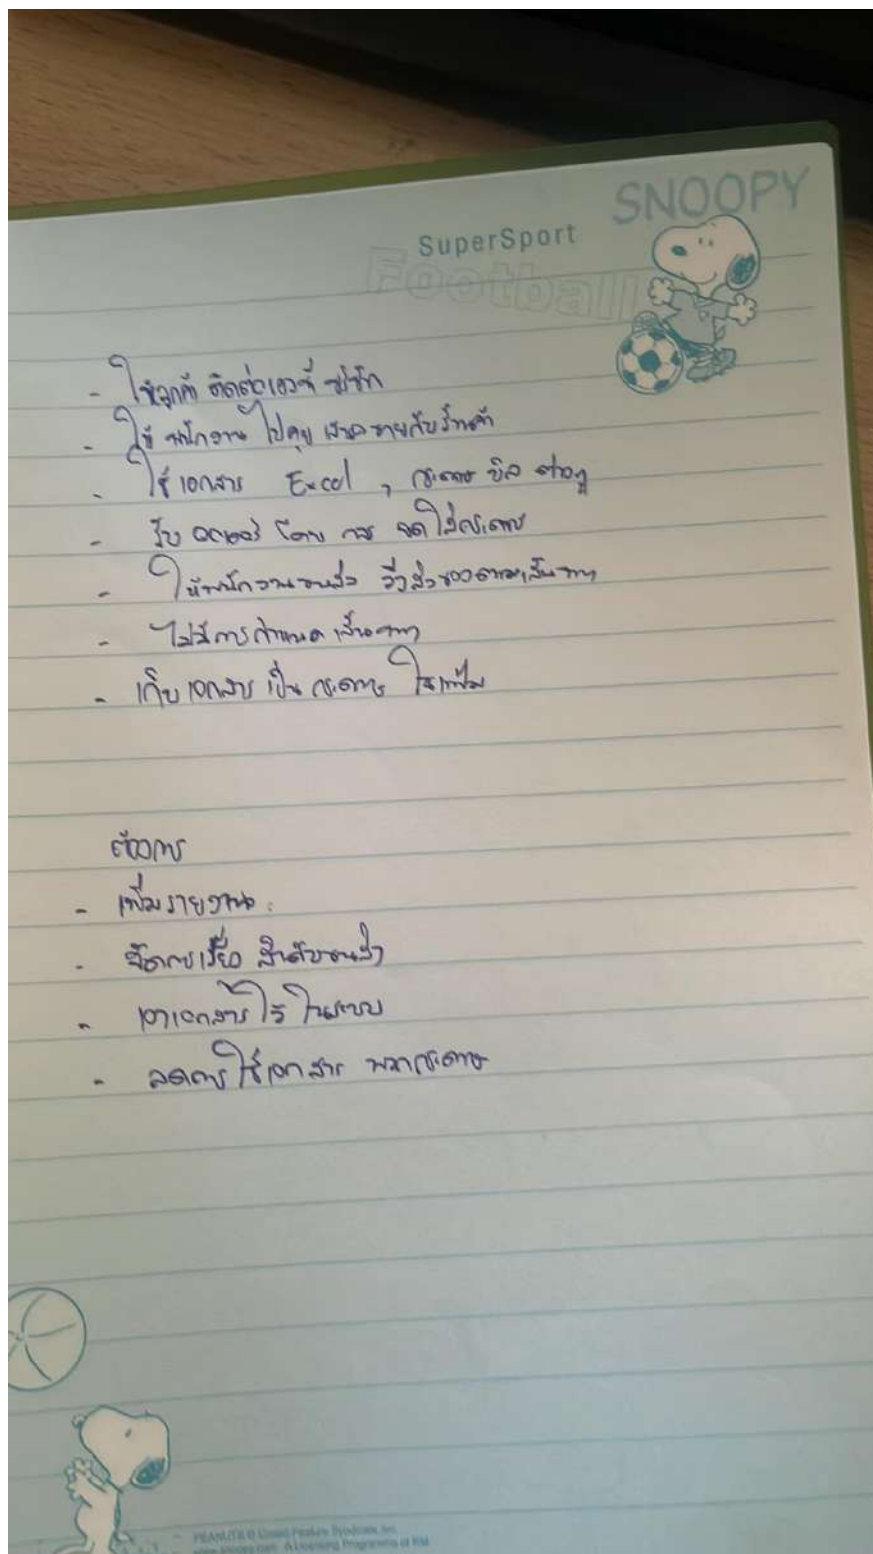 SNOOPY
SuperSport
Football
- ให้ลูกค้า ติดต่อเองที่ บริษัท
- ให้ พนักงาน ไปคุย เสนอขายกับร้านค้า
- ใช้เอกสาร Excel , กระดาษ บิล ต่างๆ
- รับ ออเดอร์ โดย การ จดใส่กระดาษ
- ให้พนักงานขนส่ง วิ่งส่งของตามเส้นทาง
- ไม่มีการกำหนด เส้นทาง
- เก็บเอกสาร เป็น กระดาษ ในแฟ้ม
ต้องการ
- เพิ่มรายงาน
- จัดการเรื่อง ขนส่ง
- เอาเอกสารไว้ ในระบบ
- ลดการใช้เอกสาร พวกกระดาษ
PEANUTS © United Feature Syndicate, Inc.
www.snoopy.com